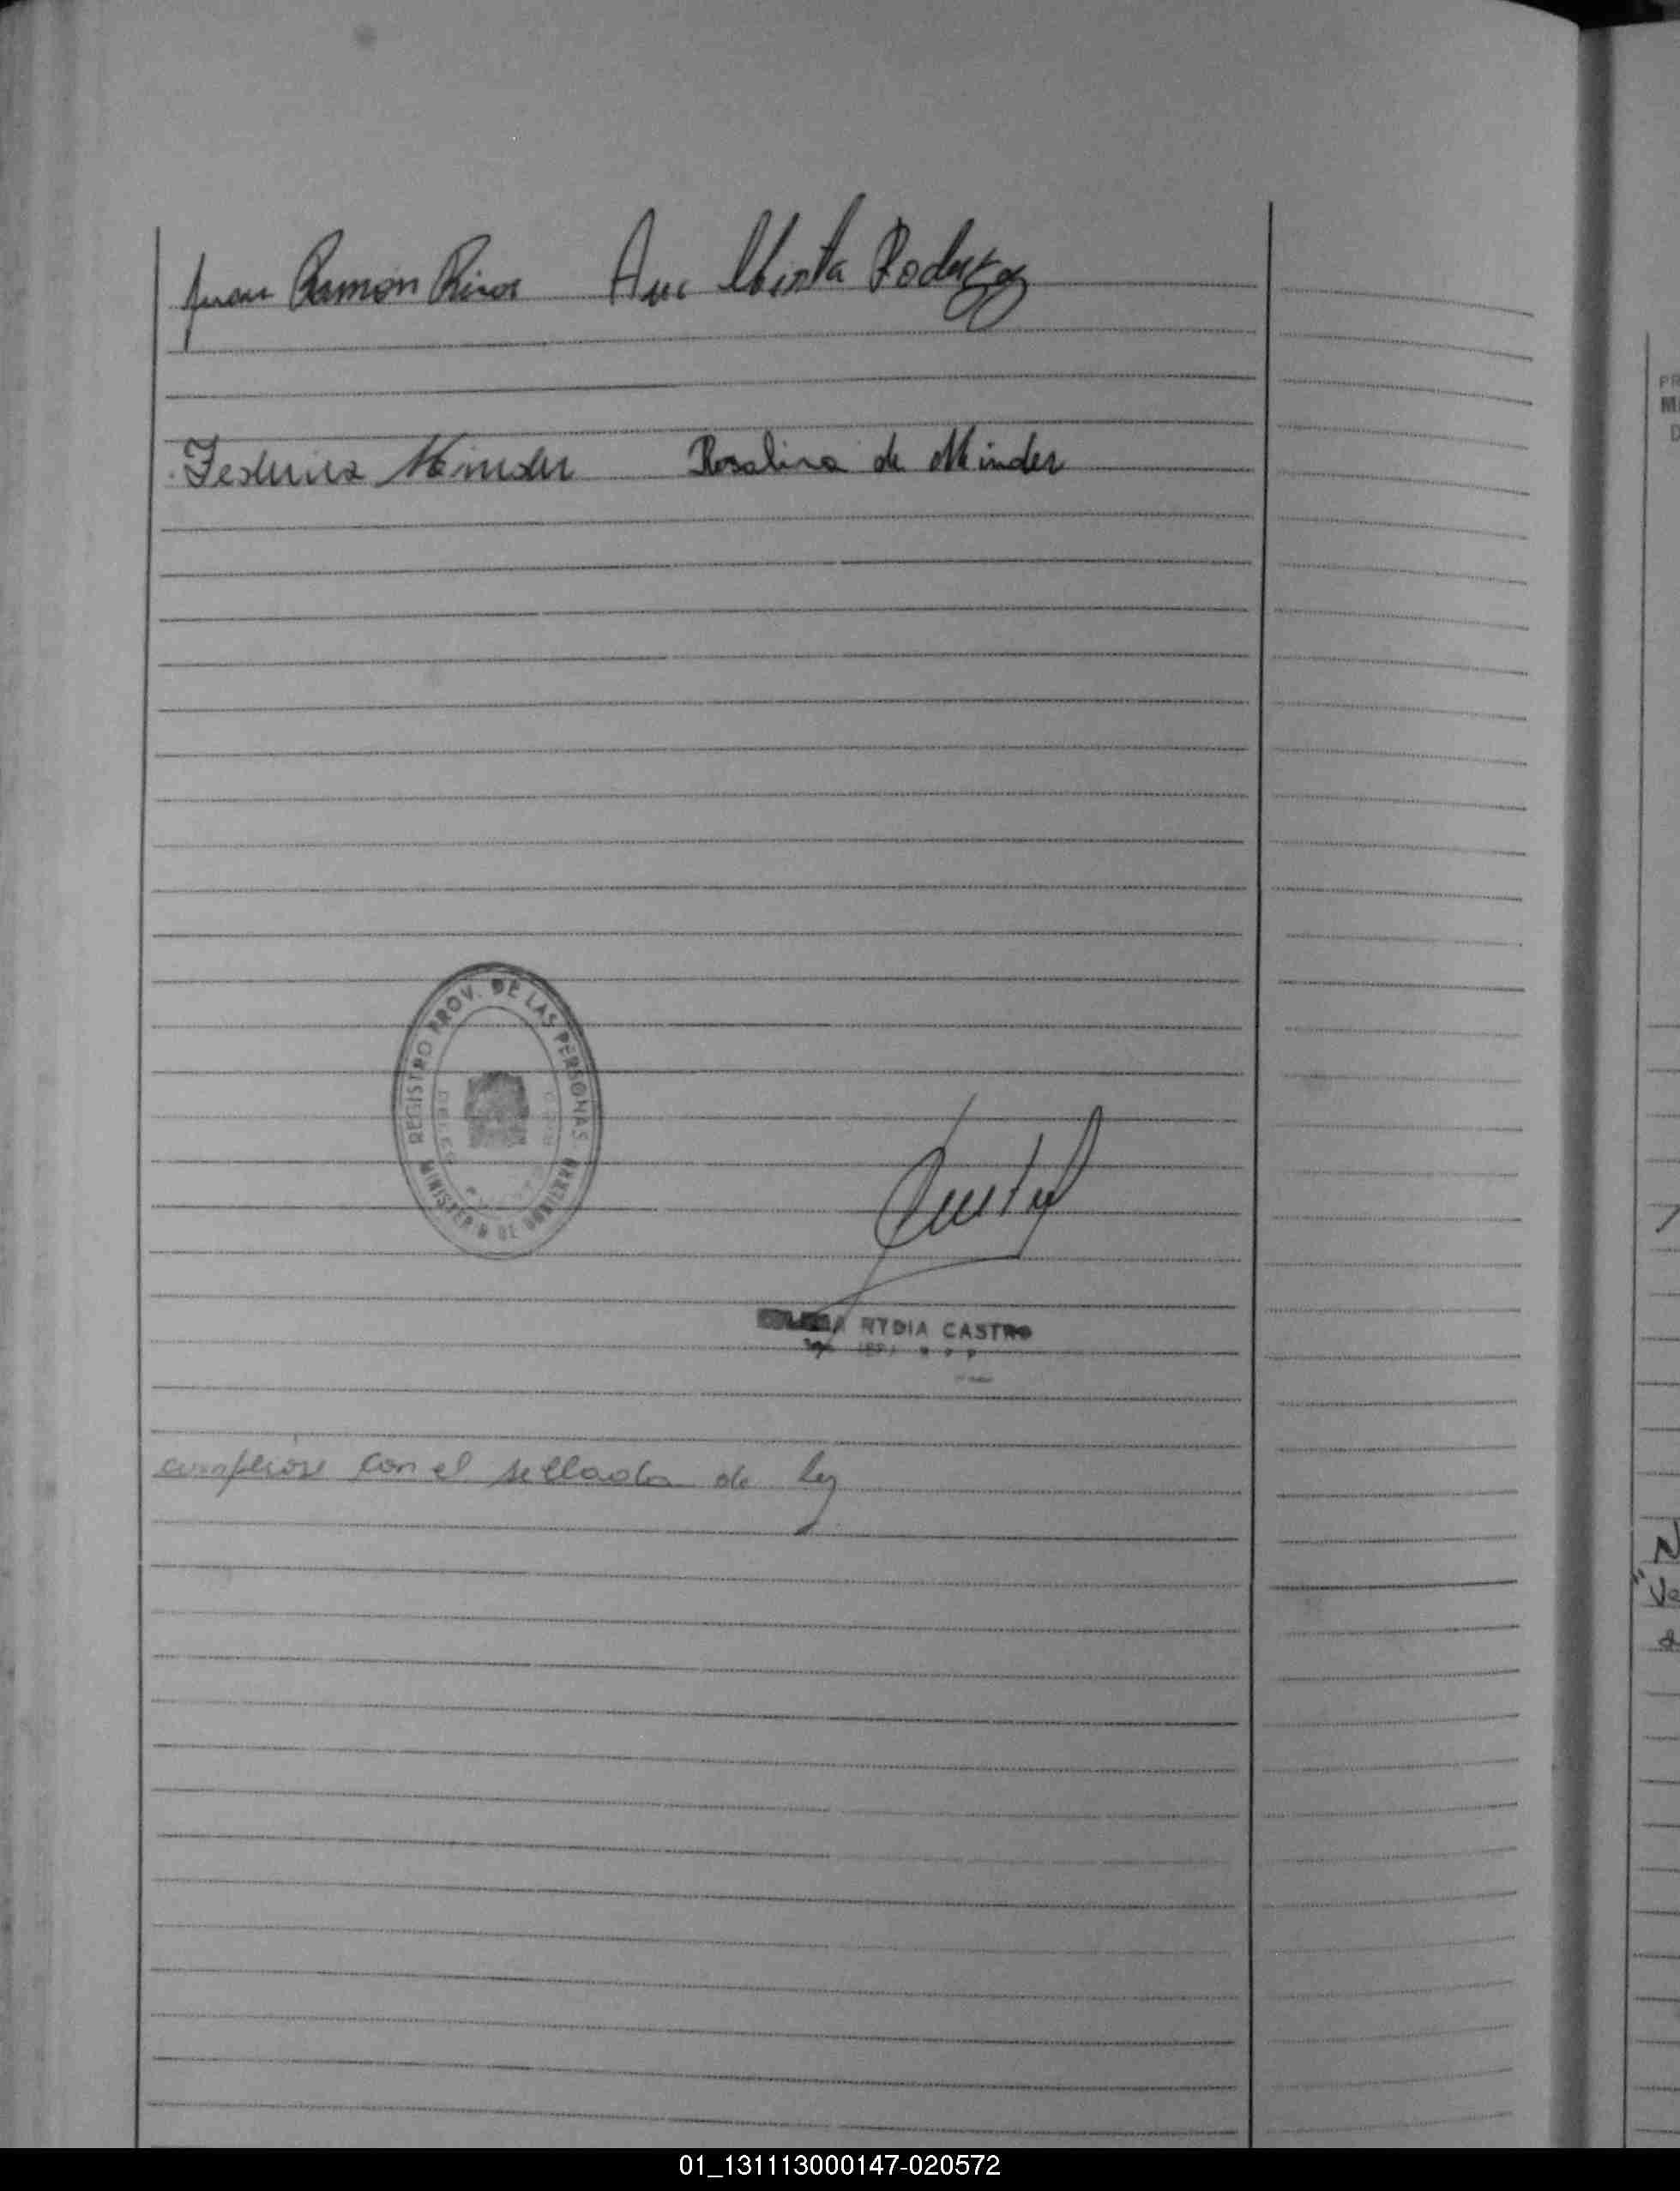 Juan Ramón Rivas Ana Mirta Rodriguez
Federico Minder Rosalina de Minder
REGISTRO PROV. DE LAS PERSONAS
MINISTERIO DE GOBIERNO
NYDIA CASTRO
cumpliose con el sellado de ley
PR
D
N
"Ve
01_131113000147-020572